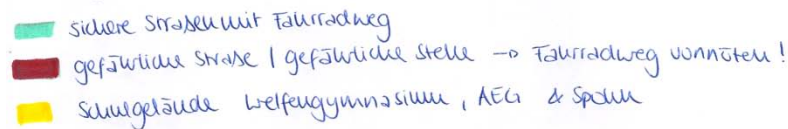 sichere Straßen mit Fahrradweg
gefährliche Straße / gefährliche Stelle → Fahrradweg vonnöten!
Schulgelände Welfengymnasium, AEG & Spohn